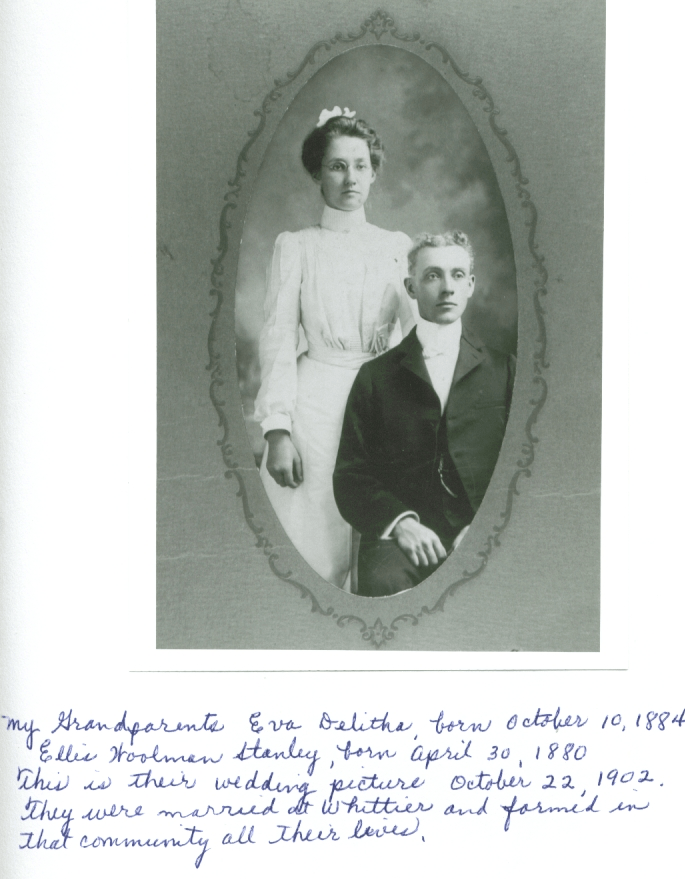 my Grandparents Eva Delitha, born October 10, 1884
Ellis Woolman Stanley, born April 30, 1880
This is their wedding picture October 22, 1902.
They were married at Whittier and farmed in
that community all their lives.